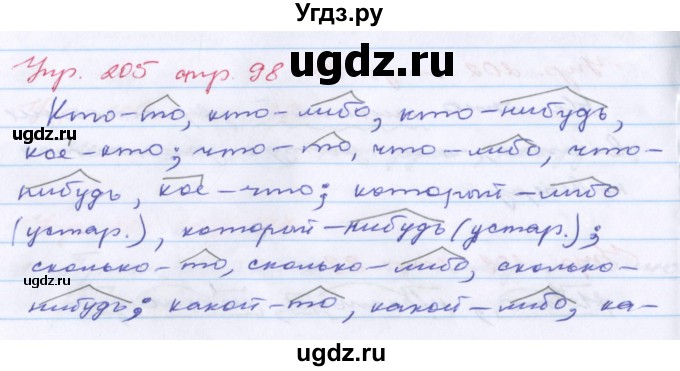 Угдз.ру
ugdz.ru
Упр. 205 стр. 98
ugdz.ru
Кто-то, кто-либо, кто-нибудь,
кое-кто; что-то, что-либо, что-
ugdz.ru
нибудь, кое-что; который-либо
(устар.), который-нибудь (устар.);
сколько-то, сколько-либо, сколько-
ugdz.ru
нибудь; какой-то, какой-либо, ка-
ugdz.ru